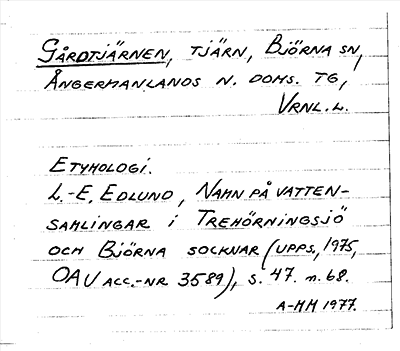 GÅRDTJÄRNEN, TJÄRN, BJÖRNA SN,
ÅNGERMANLANDS N. DOMS. TG,
VRNL.L.
ETYMOLOGI.
L.-E. EDLUND, NAMN PÅ VATTEN-
SAMLINGAR I TREHÖRNINGSJÖ
OCH BJÖRNA SOCKNAR (UPPS., 1975,
OAU ACC.-NR 3589), S. 47. n. 68.
A-MH 1977.